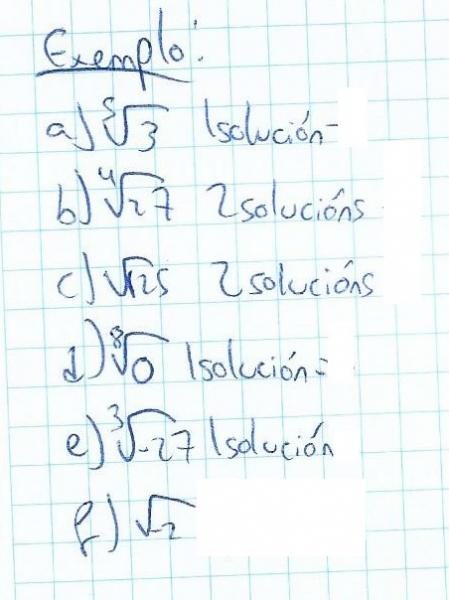 Exemplo:
a) ⁵√3 1 solución=
b) ⁴√27 2 solucións
c) √125 2 solucións
d) ⁸√0 1 solución=
e) ³√-27 1 solución
f) √-2